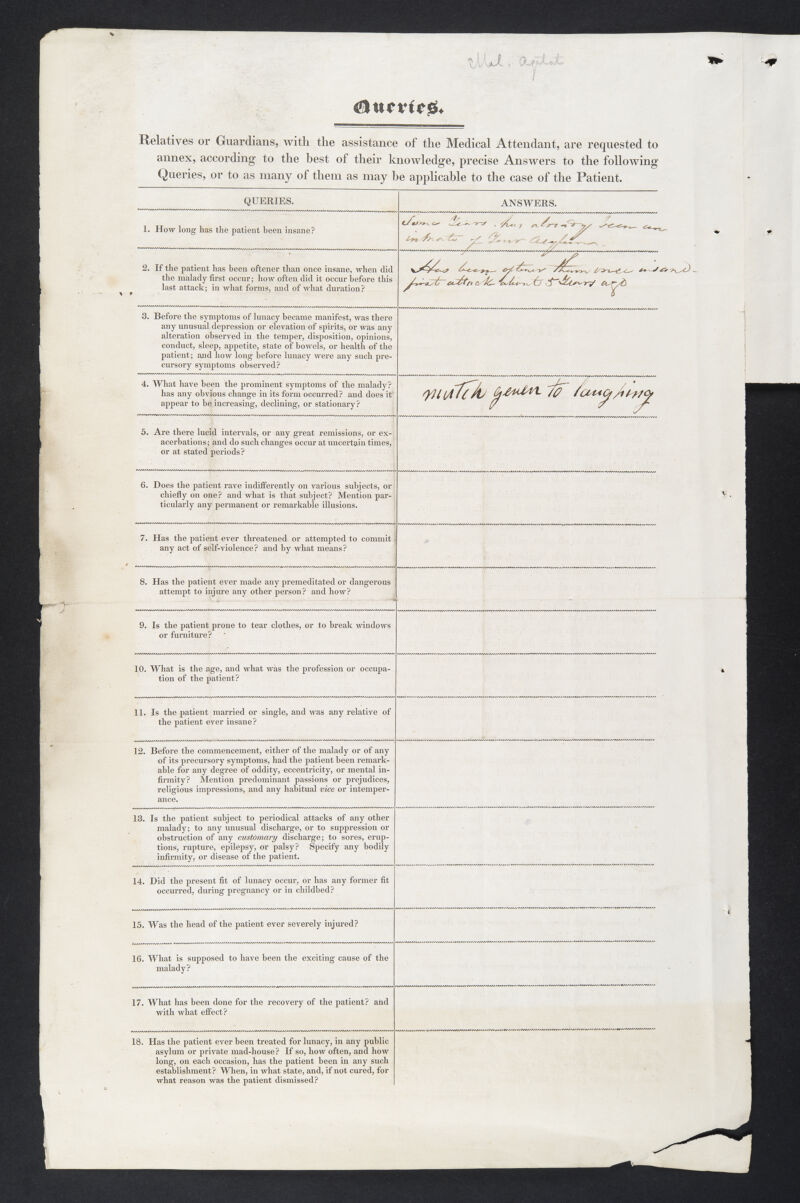 Mel. Agitat
Queries.
Relatives or Guardians, with the assistance of the Medical Attendant, are requested to
annex, according to the best of their knowledge, precise Answers to the following
Queries, or to as many of them as may be applicable to the case of the Patient.
QUERIES.
ANSWERS.
1. How long has the patient been insane?
Some Years. has already been an
inmate of Your Asylum.
2. If the patient has been oftener than once insane, when did
the malady first occur; how often did it occur before this
last attack; in what forms, and of what duration?
Has been oftener than once insane-
first attack about 5 Years ago
3. Before the symptoms of lunacy became manifest, was there
any unusual depression or elevation of spirits, or was any
alteration observed in the temper, disposition, opinions,
conduct, sleep, appetite, state of bowels, or health of the
patient; and how long before lunacy were any such pre-
cursory symptoms observed?
4. What have been the prominent symptoms of the malady?
has any obvious change in its form occurred? and does it
appear to be increasing, declining, or stationary?
mutch geven to laughing
5. Are there lucid intervals, or any great remissions, or ex-
acerbations; and do such changes occur at uncertain times,
or at stated periods?
6. Does the patient rave indifferently on various subjects, or
chiefly on one? and what is that subject? Mention par-
ticularly any permanent or remarkable illusions.
7. Has the patient ever threatened or attempted to commit
any act of self-violence? and by what means?
8. Has the patient ever made any premeditated or dangerous
attempt to injure any other person? and how?
9. Is the patient prone to tear clothes, or to break windows
or furniture?
10. What is the age, and what was the profession or occupa-
tion of the patient?
11. Is the patient married or single, and was any relative of
the patient ever insane?
12. Before the commencement, either of the malady or of any
of its precursory symptoms, had the patient been remark-
able for any degree of oddity, eccentricity, or mental in-
firmity? Mention predominant passions or prejudices,
religious impressions, and any habitual vice or intemper-
ance.
13. Is the patient subject to periodical attacks of any other
malady; to any unusual discharge, or to suppression or
obstruction of any customary discharge; to sores, erup-
tions, rupture, epilepsy, or palsy? Specify any bodily
infirmity, or disease of the patient.
14. Did the present fit of lunacy occur, or has any former fit
occurred, during pregnancy or in childbed?
15. Was the head of the patient ever severely injured?
16. What is supposed to have been the exciting cause of the
malady?
17. What has been done for the recovery of the patient? and
with what effect?
18. Has the patient ever been treated for lunacy, in any public
asylum or private mad-house? If so, how often, and how
long, on each occasion, has the patient been in any such
establishment? When, in what state, and, if not cured, for
what reason was the patient dismissed?